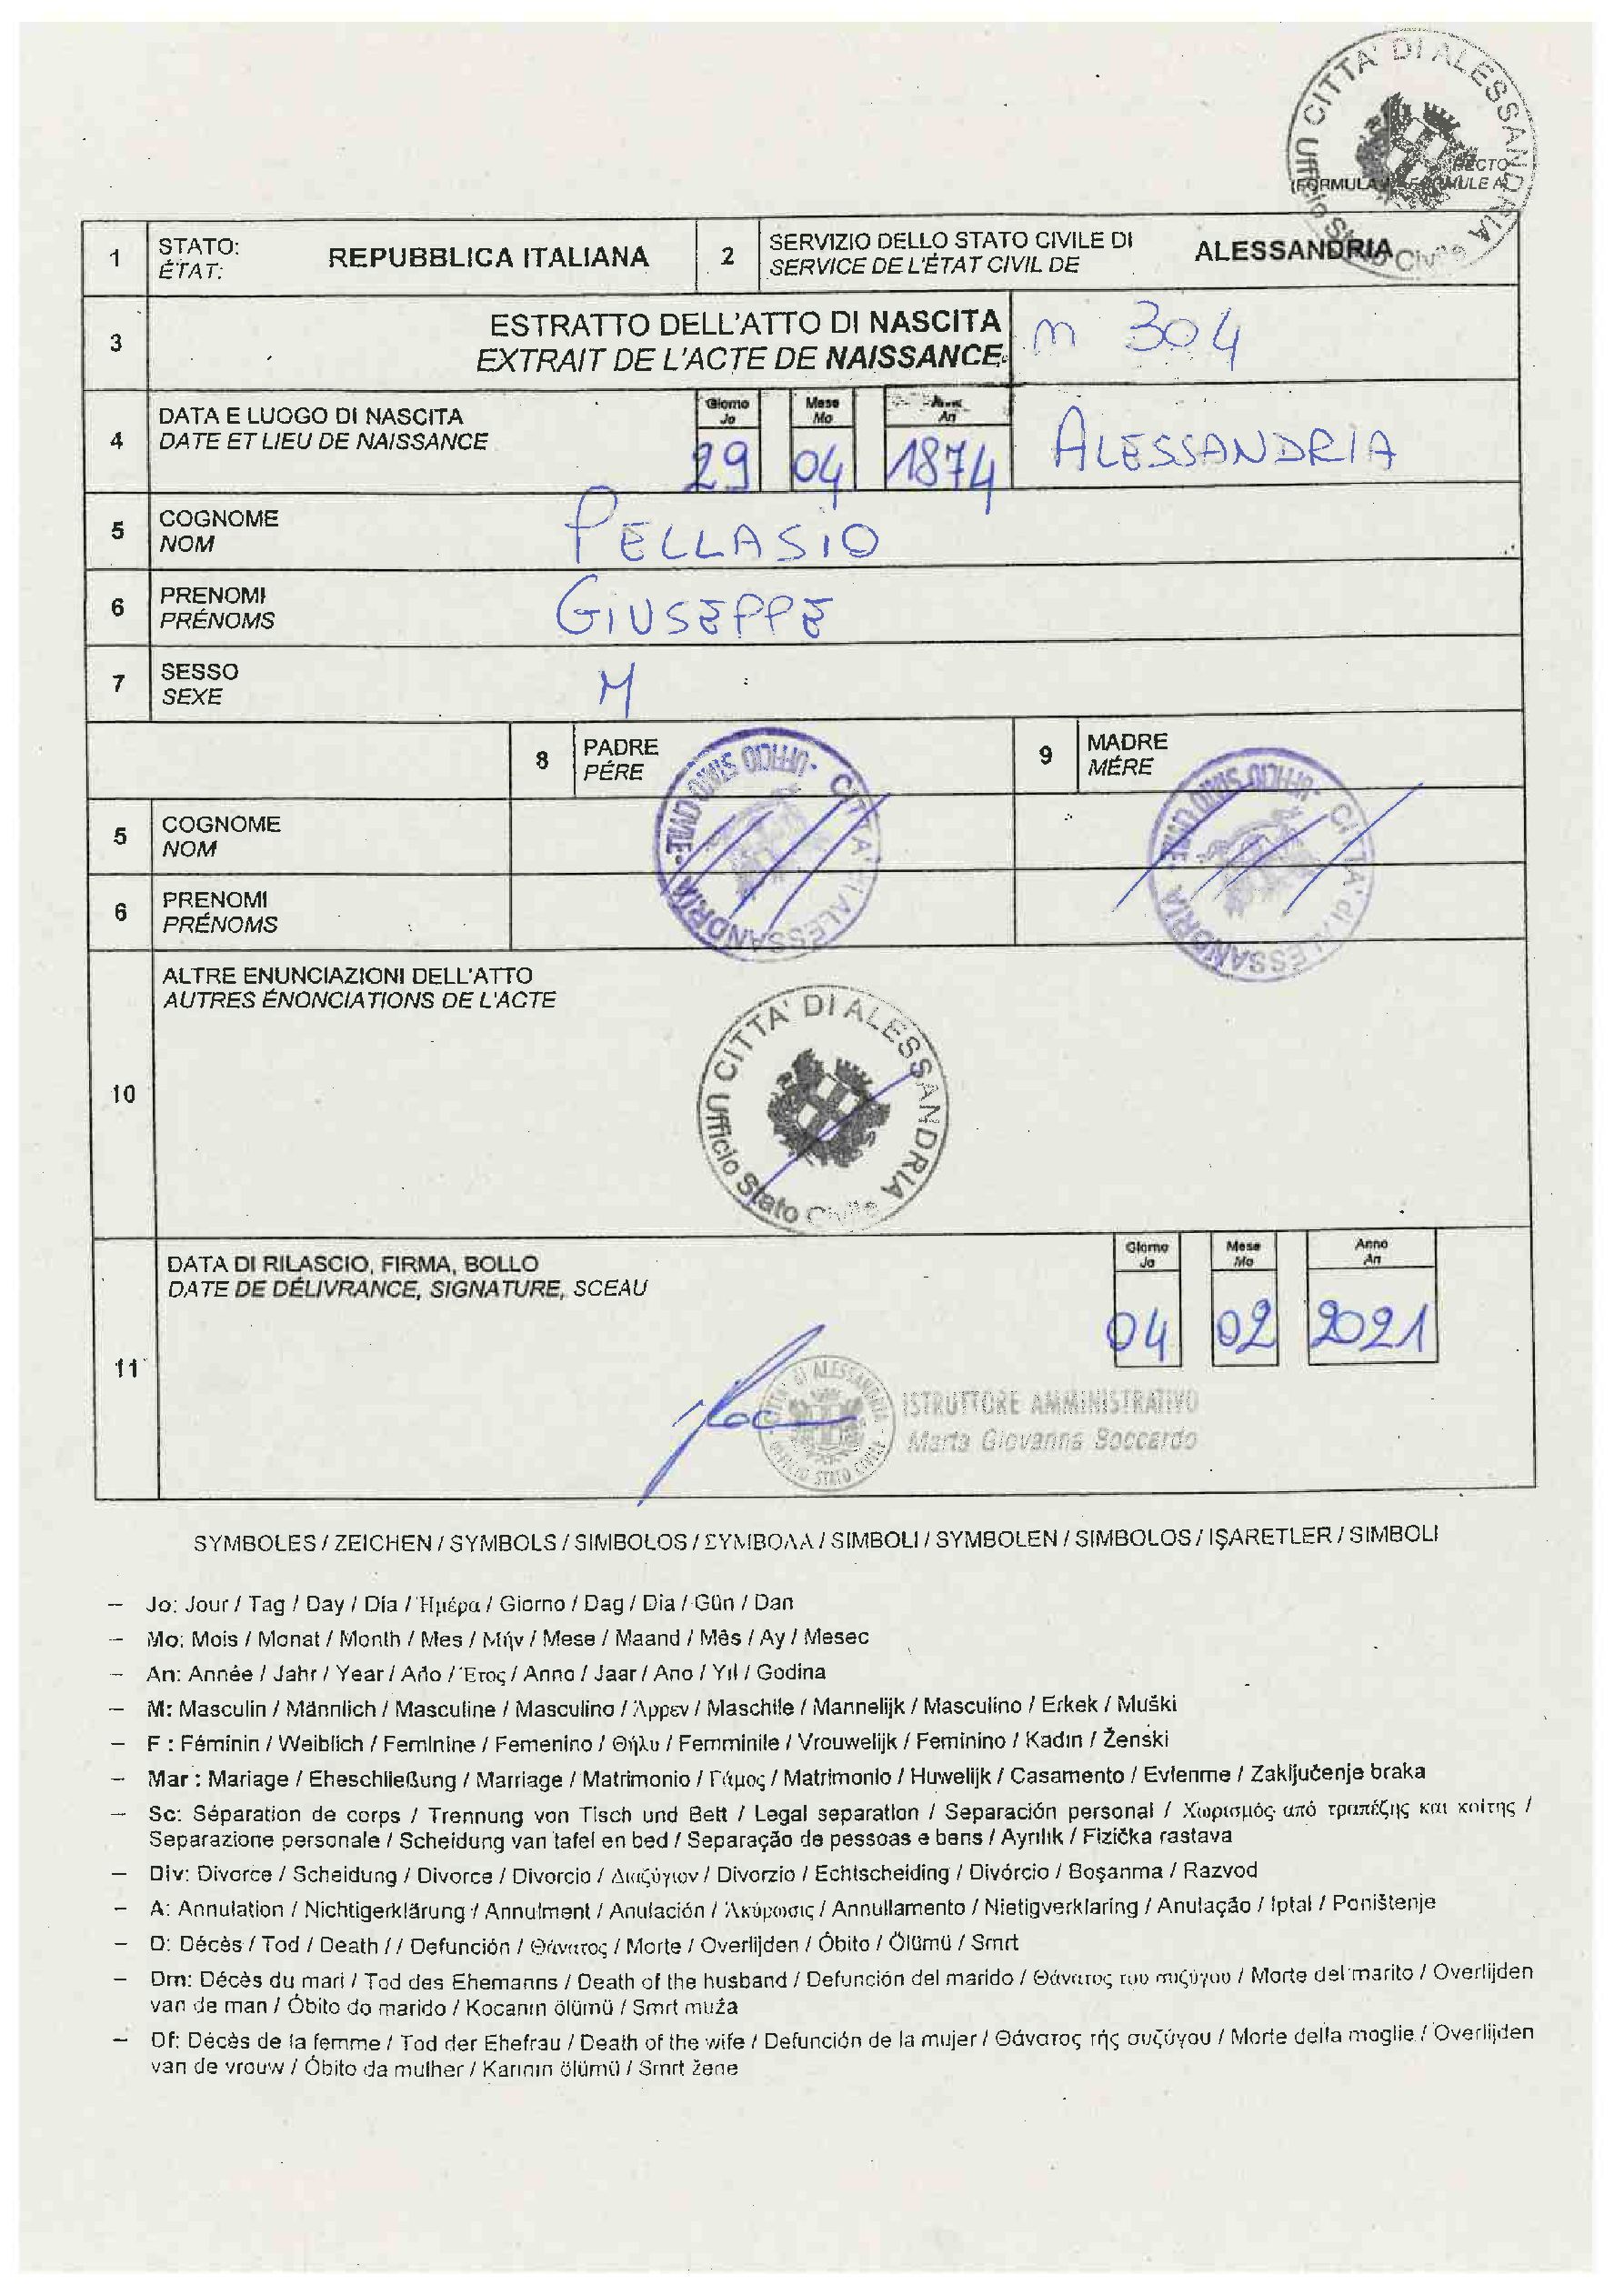 CITTA' DI ALESSANDRIA
Ufficio Stato Civile
RECTO
(FORMULA A FORMULE A)
1 STATO: REPUBBLICA ITALIANA 2 SERVIZIO DELLO STATO CIVILE DI ALESSANDRIA
ÉTAT: SERVICE DE L'ÉTAT CIVIL DE
3 ESTRATTO DELL'ATTO DI NASCITA n 304
EXTRAIT DE L'ACTE DE NAISSANCE
Giorno Mese
Jo Mo An
4 DATA E LUOGO DI NASCITA 29 04 1874 ALESSANDRIA
DATE ET LIEU DE NAISSANCE
5 COGNOME PELLASIO
NOM
6 PRENOMI GIUSEPPE
PRÉNOMS
7 SESSO M
SEXE
8 PADRE 9 MADRE
PÉRE MÉRE
UFFICIO STATO CIVILE - CITTA' di ALESSANDRIA
UFFICIO STATO CIVILE - CITTA' di ALESSANDRIA
5 COGNOME
NOM
6 PRENOMI
PRÉNOMS
10 ALTRE ENUNCIAZIONI DELL'ATTO
AUTRES ÉNONCIATIONS DE L'ACTE
CITTA' DI ALESSANDRIA
Ufficio Stato Civile
11 DATA DI RILASCIO, FIRMA, BOLLO
DATE DE DÉLIVRANCE, SIGNATURE, SCEAU
Giorno Mese Anno
Jo Mo An
04 02 2021
CITTA' DI ALESSANDRIA - UFFICIO STATO CIVILE -
ISTRUTTORE AMMINISTRATIVO
Maria Giovanna Boccardo
SYMBOLES / ZEICHEN / SYMBOLS / SIMBOLOS / ΣΥΜΒΟΛΑ / SIMBOLI / SYMBOLEN / SIMBOLOS / IŞARETLER / SIMBOLI
– Jo: Jour / Tag / Day / Día / Ημέρα / Giorno / Dag / Dia / Gün / Dan
– Mo: Mois / Monat / Month / Mes / Μήν / Mese / Maand / Mês / Ay / Mesec
– An: Année / Jahr / Year / Año / Έτος / Anno / Jaar / Ano / Yıl / Godina
– M: Masculin / Männlich / Masculine / Masculino / Άρρεν / Maschile / Mannelijk / Masculino / Erkek / Muški
– F : Féminin / Weiblich / Feminine / Femenino / Θήλυ / Femminile / Vrouwelijk / Feminino / Kadın / Ženski
– Mar : Mariage / Eheschließung / Marriage / Matrimonio / Γάμος / Matrimonio / Huwelijk / Casamento / Evlenme / Zaključenje braka
– Sc: Séparation de corps / Trennung von Tisch und Bett / Legal separation / Separación personal / Χωρισμός από τραπέζης και κοίτης /
Separazione personale / Scheidung van tafel en bed / Separação de pessoas e bens / Ayrılık / Fizička rastava
– Div: Divorce / Scheidung / Divorce / Divorcio / Διαζύγιον / Divorzio / Echtscheiding / Divórcio / Boşanma / Razvod
– A: Annulation / Nichtigerklärung / Annulment / Anulación / Ακύρωσις / Annullamento / Nietigverklaring / Anulação / Iptal / Poništenje
– D: Décès / Tod / Death / / Defunción / Θάνατος / Morte / Overlijden / Óbito / Ölümü / Smrt
– Dm: Décès du mari / Tod des Ehemanns / Death of the husband / Defunción del marido / Θάνατος του συζύγου / Morte del marito / Overlijden
van de man / Óbito do marido / Kocanın ölümü / Smrt muža
– Df: Décès de la femme / Tod der Ehefrau / Death of the wife / Defunción de la mujer / Θάνατος τής συζύγου / Morte della moglie / Overlijden
van de vrouw / Óbito da mulher / Karının ölümü / Smrt žene